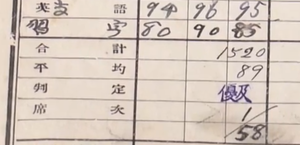 英語 94 96 95
習字 80 90 85
合計 1520
平均 89
判定 優良
席次 1/58